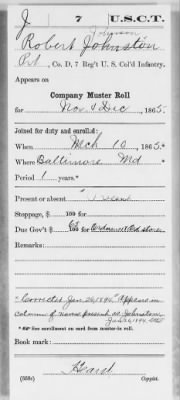 J 7 U.S.C.T.
Johnson
Robert Johnston
Pvt, Co. D, 7 Reg't U. S. Col'd Infantry.
Appears on
Company Muster Roll
for Nov & Dec, 1865.
Joined for duty and enrolled:
When Mch 10, 1865.
Where Baltimore Md
Period 1 years.*
Present or absent Present
Stoppage, $ 100 for
Due Gov't $ 100 for Ordnance Ord stores
Remarks:
"Corrected Jan 26, 1894." Appears in
column of names present as Johnston
*See enrollment on card from muster-in roll.
Book mark:
(358c) Copyist.